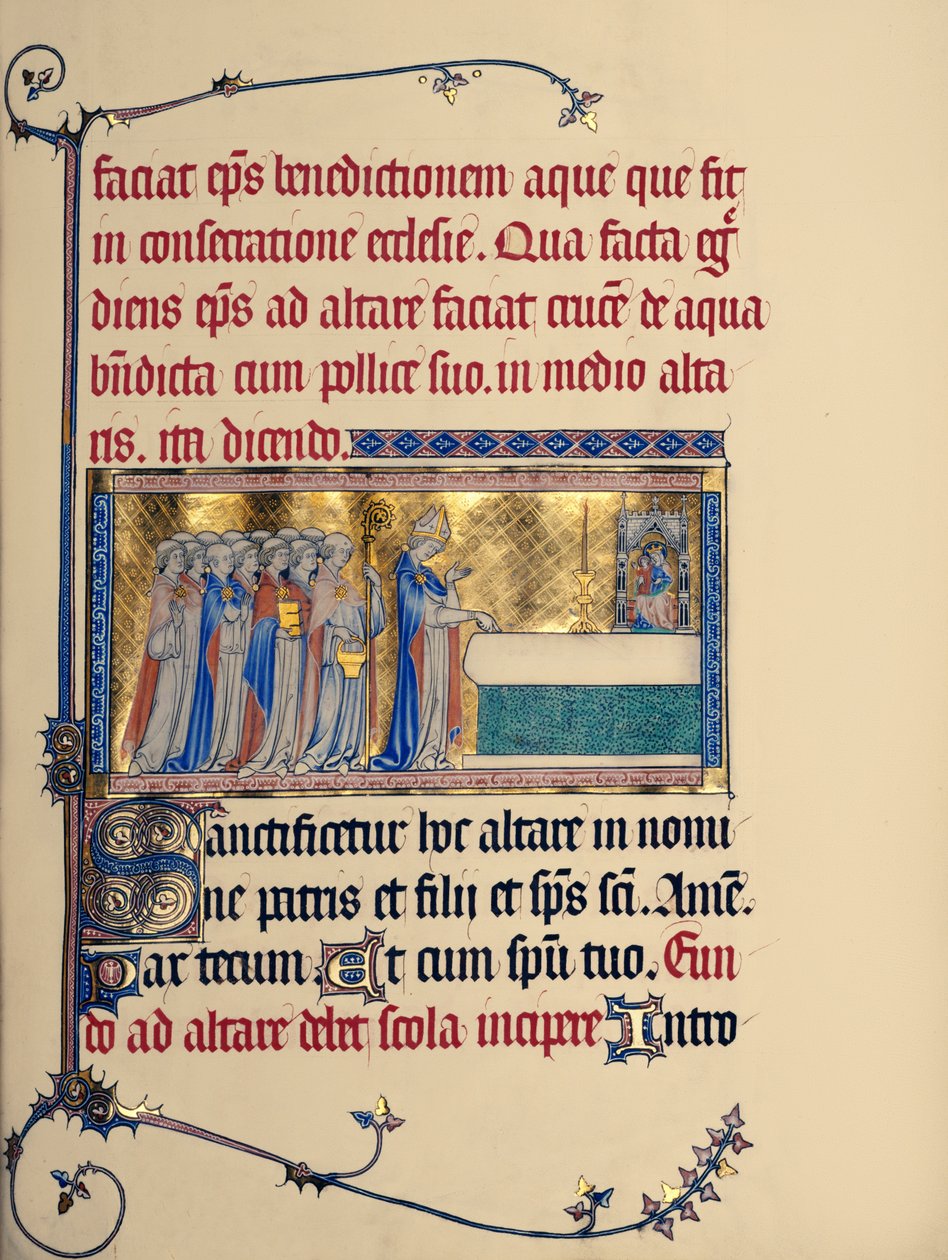 faciat ep̄s benedictionem aque que fit
in consecratione ecclesie. Qua facta egͤ
diens ep̄s ad altare faciat crucē de aqua
bn̄dicta cum pollice suo. in medio alta
ris. ita dicendo.
Sanctificetur hoc altare in nomi
ne patris et filij et sp̄s sc̄i. Amē.
Pax tecum. Et cum sp̄u tuo. Eun
do ad altare debet scola incipere Intro